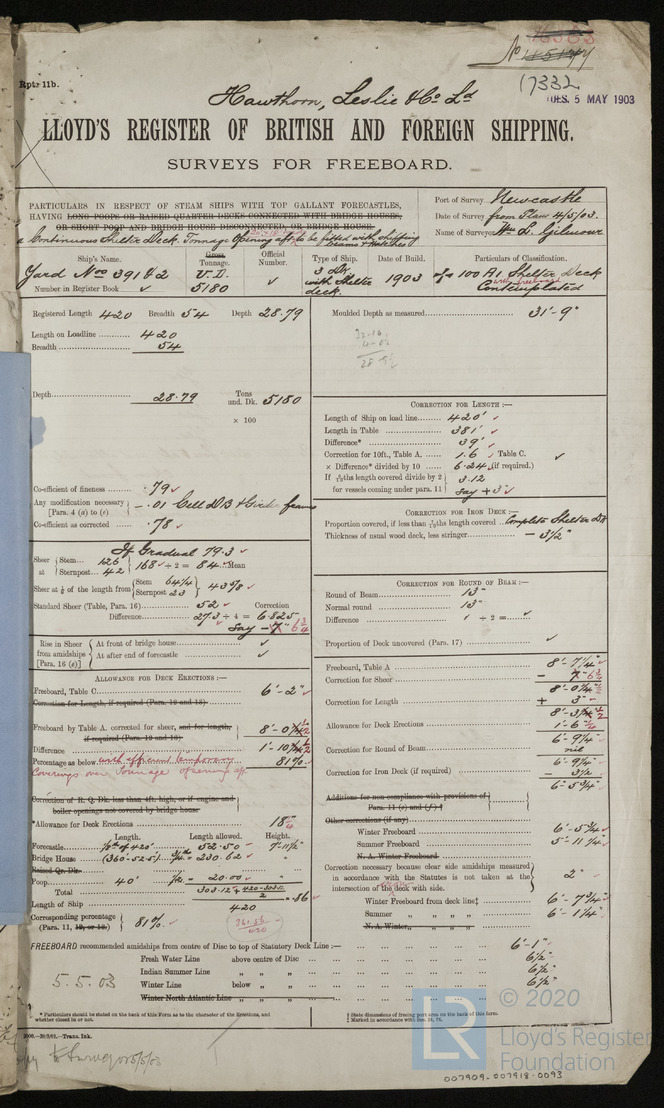 Rptr 11b.
17332
TUES. 5 MAY 1903
Hawthorn, Leslie & Co Ld
LLOYD'S REGISTER OF BRITISH AND FOREIGN SHIPPING.
SURVEYS FOR FREEBOARD.
PARTICULARS IN RESPECT OF STEAM SHIPS WITH TOP GALLANT FORECASTLES,
HAVING LONG POOPS OR RAISED QUARTER DECKS CONNECTED WITH BRIDGE HOUSES,
OR SHORT POOP AND BRIDGE HOUSE DISCONNECTED, OR BRIDGE HOUSE
a Continuous Shelter Deck. Tonnage Opening aft to be fitted with shifting beams & hatches
Port of Survey Newcastle
Date of Survey from Plans 4/5/03.
Name of Surveyor Wm L. Gilmour
Ship's Name. Gross Tonnage. Official Number. Type of Ship. Date of Build. Particulars of Classification.
Yard Nos 391 & 2 U.D. 3 Dk with Shelter deck. 1903 100 A1 Shelter Deck
Number in Register Book 5180 with freeboard Contemplated
Registered Length 420 Breadth 54 Depth 28.79
Length on Loadline 420
Breadth 54
Depth 28.79 Tons und. Dk. 5180
× 100
Co-efficient of fineness .79
Any modification necessary [Para. 4 (a) to (e) -.01 Cell D.B & Girder frames
Co-efficient as corrected .78
If Gradual 79.3
Sheer at Stem 126 Sternpost 42 168 ÷ 2 = 84 Mean
Sheer at ⅛ of the length from Stem 64¼ Sternpost 23 43⅝
Standard Sheer (Table, Para. 16) 52 Correction
Difference 27.3 ÷ 4 = 6.825
Say - 7 6¾
Rise in Sheer from amidships [Para. 16 (e)]
At front of bridge house
At after end of forecastle
ALLOWANCE FOR DECK ERECTIONS:—
Freeboard, Table C 6'-2"
Correction for Length, if required (Para. 12 and 13)
Freeboard by Table A. corrected for sheer, and for length, if required (Para. 12 and 13) 8'-0½
Difference 1'-10½
Percentage as below 81%
with efficient temporary Coverings over Tonnage opening aft
Correction of R. Q. Dk. less than 4ft. high, or if engine and boiler openings not covered by bridge house
*Allowance for Deck Erections 18
Length. Length allowed. Height.
Forecastle ⅛th of 420' 52.50 7'-11½"
Bridge House (360-52.5) ¾ths = 230.62
Raised Qr. Dk.
Poop 40' ½ = 20.00
Total 303.12 + 420-303.12 / 2
Length of Ship 420 = .86
Corresponding percentage (Para. 11, 12, or 13.) 81%
361.56 / 420
Moulded Depth as measured 31'-9"
CORRECTION FOR LENGTH:—
Length of Ship on load line 420'
Length in Table 381'
Difference* 39'
Correction for 10ft., Table A. 1.6 Table C.
× Difference* divided by 10 6.24 (if required.)
If 6/10ths length covered divide by 2 for vessels coming under para. 11 3.12
Say + 3"
CORRECTION FOR IRON DECK:—
Proportion covered, if less than 7/10ths length covered Complete Shelter Dk
Thickness of usual wood deck, less stringer - 3½"
CORRECTION FOR ROUND OF BEAM:—
Round of Beam 13"
Normal round 13"
Difference ÷ 2 =
Proportion of Deck uncovered (Para. 17)
Freeboard, Table A 8'-7¼"
Correction for Sheer - 7 6¾
8'-0½
Correction for Length + 3"
8'-3½
Allowance for Deck Erections 1'-6
6'-9¼"
Correction for Round of Beam nil
6'-9¼"
Correction for Iron Deck (if required) - 3½
6'-5¾"
Additions for non-compliance with provisions of Para. 11 (e) and (f)
Other corrections (if any)
Winter Freeboard 6'-5¾
Summer Freeboard 5'-11¼
N. A. Winter Freeboard
Correction necessary because clear side amidships measured in accordance with the Statutes is not taken at the intersection of the deck with side. 2"
Winter Freeboard from deck line‡ 6'-7¾"
Summer „ „ „ „ 6'-1¼"
N. A. Winter „ „ „ „
FREEBOARD recommended amidships from centre of Disc to top of Statutory Deck Line:— 6'-1"
Fresh Water Line above centre of Disc 6½"
Indian Summer Line „ „ 6½"
Winter Line below „ 6½"
Winter North Atlantic Line „ „
5.5.03
* Particulars should be stated on the back of this Form as to the character of the Erections, and whether closed in or not.
† State dimensions of freeing port area on the back of this form.
‡ Marked in accordance with
Trans. Ink.
to Surveyor 5/5/03
LR © 2020
Lloyd's Register
Foundation
007909-007918-0093